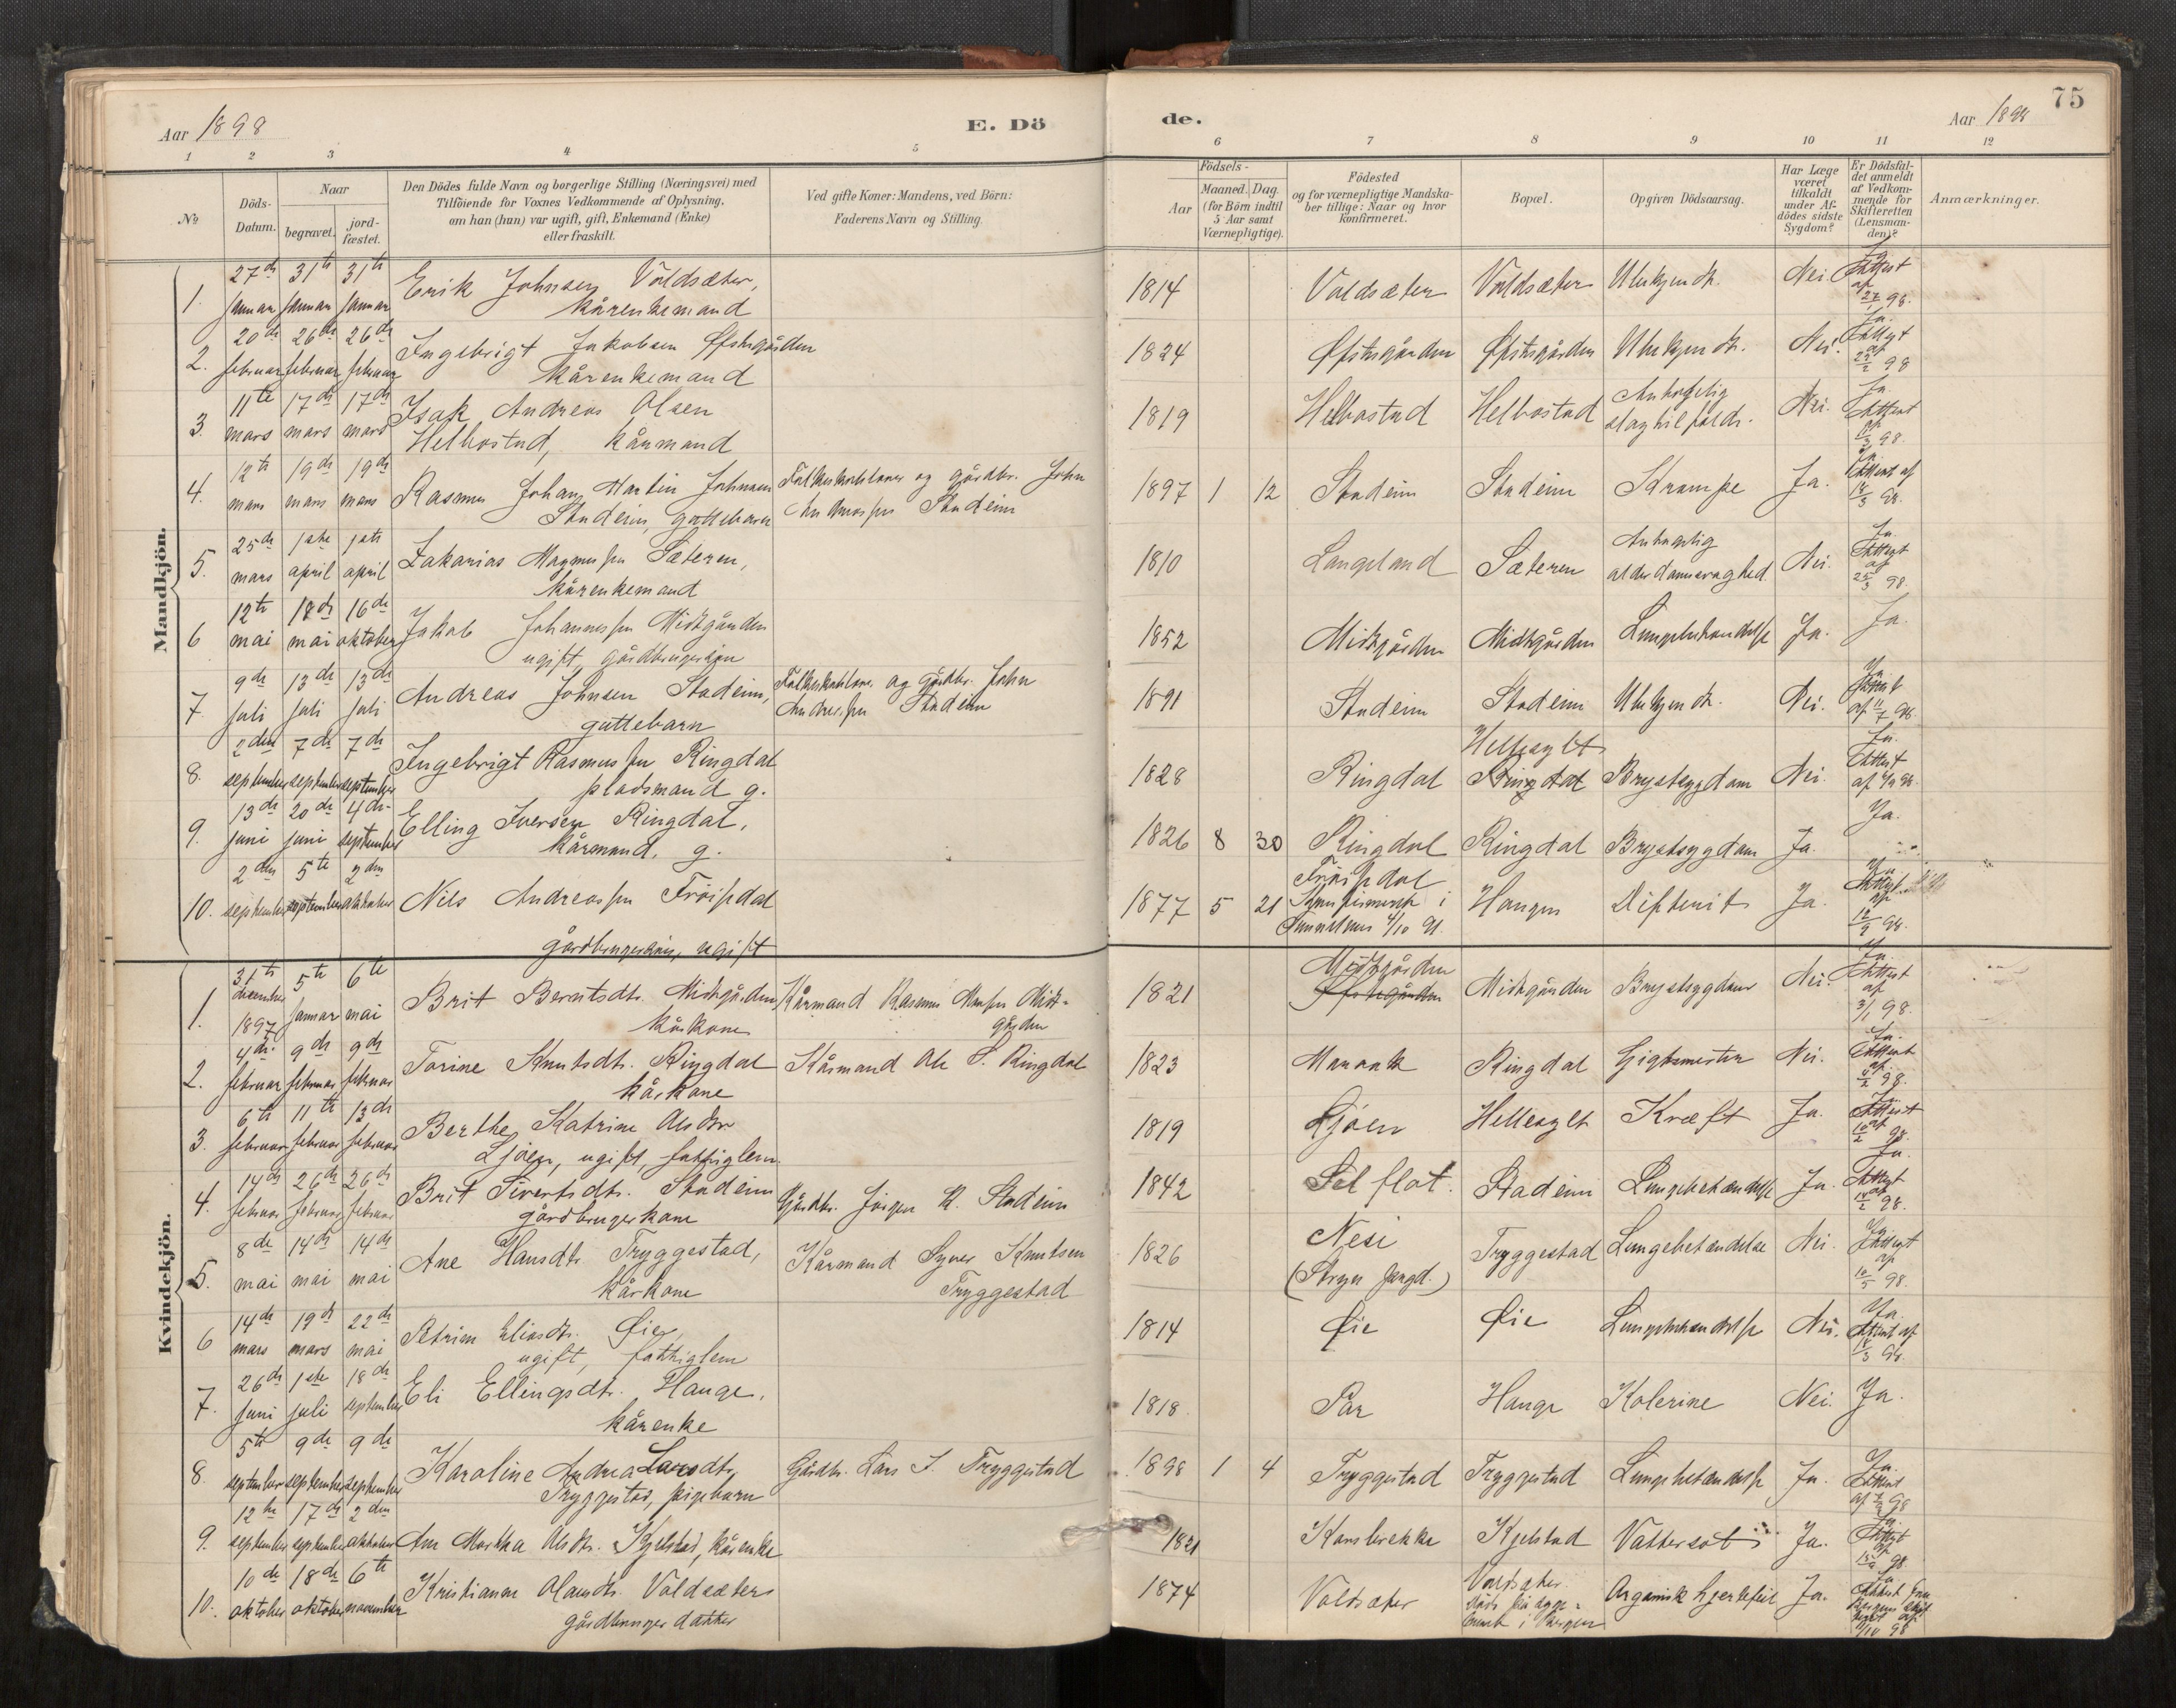 Aar 1898
E. Dö
de.
Aar 1898
75
1 2 3 4 5 6 7 8 9 10 11 12
№
Döds-Datum.
Naar
begravet.
jord-fæstet.
Den Dödes fulde Navn og borgerlige Stilling (Næringsvei) med
Tilföiende for Voxnes Vedkommende af Oplysning,
om han (hun) var ugift, gift, Enkemand (Enke)
eller fraskilt.
Ved gifte Koner: Mandens, ved Börn:
Faderens Navn og Stilling.
Födsels-
Aar
Maaned. Dag.
(for Börn indtil
5 Aar samt
Værnepligtige).
Födested
og for værnepligtige Mandska-
ber tillige: Naar og hvor
konfirmeret.
Bopæl.
Opgiven Dödsaarsag.
Har Læge
været
tilkaldt
under Af-
dödes sidste
Sygdom?
Er Dödsfal-
det anmeldt
af Vedkom-
mende for
Skifteretten
(Lensman-
den)?
Anmærkninger.
Mandkjön.
1. 27de januar 31te januar 31te januar Erik Johnsen Voldsæter, kårenkemand 1814 Voldsæter Voldsæter Ubekjendt. Nei. Ja Attest af 27/1 98.
2. 20de februar 26de februar 26de februar Ingebrigt Jakobsen Øfstegården kårenkemand 1824 Øfstegården Øfstegården Ubekjendt. Nei. Ja. Attest af 22/2 98
3. 11te mars 17de mars 17de mars Isak Andreas Olsen Helbostad, kårmand 1819 Helbostad Helbostad Antagelig slagtilfælde. Nei. Ja. Attest af 98.
4. 12te mars 19de mars 19de mars Rasmus Johan Martin Johnsen Stadeim, guttebarn Folkeskolelærer og gårdbr. John Andreassen Stadeim 1897 1 12 Stadeim Stadeim Krampe Ja. Attest af 18/3 98.
5. 25de mars 1ste april 1ste april Zakarias Magnussen Sæteren, kårenkemand 1810 Langeland Sæteren Antagelig alderdomssvaghed Nei. Ja. Attest af 25/3 98.
6 12te mai 18de mai 16de oktober Jakob Johannessen Midtgården ugift, gårdbrugersøn 1852 Midtgården Midtgården Lungebetændelse Ja. Ja.
7. 9de juli 13de juli 13de juli Andreas Johnsen Stadeim, guttebarn Folkeskolelærer og gårdbr. John Andreassen Stadeim 1891 Stadeim Stadeim Ubekjendt. Nei. Ja Attest af 11/7 98.
8. 2den september 7de september 7de september Ingebrigt Rasmussen Ringdal pladsmand g. 1828 Ringdal Hellesylt Ringdal Brystsygdom Nei. Ja. Attest af 98.
9. 13de juni 20de juni 4de september Elling Iversen Ringdal, kårmand, g. 1826 8 30 Ringdal Ringdal Brystsygdom Ja. Ja.
10. 2den september 5te september 2den oktober Nils Andreassen Frøisdal gårdbrugersøn, ugift 1877 5 21 Frøisdal Konfirmeret i Sunnelven 4/10 91. Haugen Difterit Ja. Ja. Attest af 12/9 98.
Kvindekjön.
1. 31te december 1897 5te januar 6te mai Brit Berntsdtr. Midtgården kårkone Kårmand Rasmus Midtgården 1821 Midtgården Øfstegården Midtgården Brystsygdom Nei. Ja. Attest af 3/1 98.
2. 4de februar 9de februar 9de februar Torine Knutsdtr. Ringdal kårkone Kårmand Ole S. Ringdal 1823 Maraak Ringdal Gigtsmerter Nei. Ja. Attest af 98.
3. 6te februar 11te februar 13de februar Berthe Katrine Olsdtr. Ljøen, ugift, fattiglem 1819 Ljøen Hellesylt Kræft Ja. Ja Attest af 10/2 98.
4. 14de februar 26de februar 26de februar Brit Sivertsdtr. Stadeim gårdbrugerkone Gårdbr. Jørgen R. Stadeim 1842 Selflot. Stadeim Lungebetændelse Ja. Ja. Attest af 14/2 98.
5. 8de mai 14de mai 14de mai Ane Hansdtr. Tryggestad, kårkone Kårmand Syver Knutsen Tryggestad 1826 Nesi (Stryn prgd.) Tryggestad Lungebetændelse Nei. Ja. Attest af 10/5 98.
6 14de mars 19de mars 22de mai Petrine Eliasdtr. Øie, ugift, fattiglem 1814 Øie Øie Lungebetændelse Nei. Ja. Attest af 18/3 98.
7. 26de juni 1ste juli 18de september Eli Ellingsdtr. Hauge, kårenke 1818. Par Hauge Kolerine Nei. Ja.
8. 5te september 9de september 9de september Karoline Andrea Larsdtr. Tryggestad, pigebarn Gårdbr. Lars I. Tryggestad 1898 1 4 Tryggestad Tryggestad Lungebetændelse Ja. Ja. Attest af 98
9. 12te september 17de september 2den oktober Ane Martha Olsdtr. Kjelstad, kårenke 1821 Korsbrekke Kjelstad Vattersot Ja. Ja. Attest af 15/9 98.
10. 10de oktober 18de oktober 6te november Kristianne Olausdtr. Voldsæter gårdbrugerdatter 1874 Voldsæter Voldsæter døde på sygehuset i Bergen Organisk hjertefeil Ja. Ja Attest fra Bergens skifteret af 11/10 98